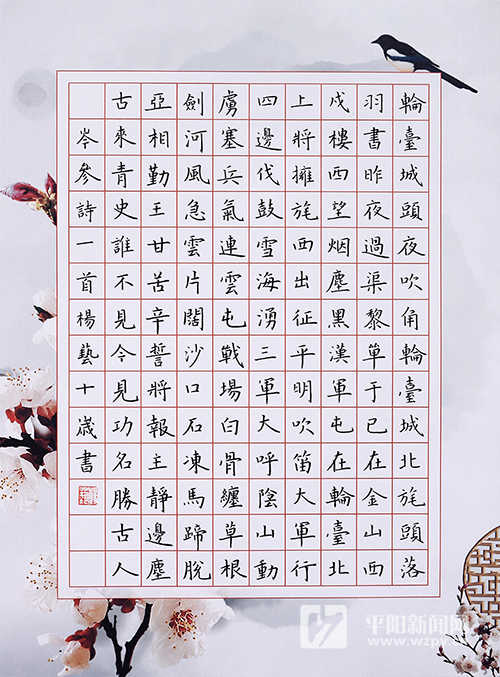 輪臺城頭夜吹角輪臺城北旄頭落
羽書昨夜過渠黎單于已在金山西
戍樓西望烟塵黑漢軍屯在輪臺北
上將擁旄西出征平明吹笛大軍行
四邊伐鼓雪海湧三軍大呼陰山動
虜塞兵氣連雲屯戰場白骨纏草根
劍河風急雲片闊沙口石凍馬蹄脫
亞相勤王甘苦辛誓將報主靜邊塵
古來青史誰不見今見功名勝古人
岑參詩一首楊藝十歲書
平阳新闻网
www.wzpy.com